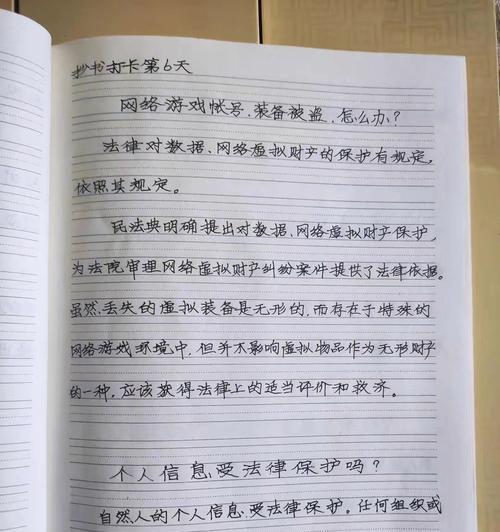 抄书打卡第6天
网络游戏帐号、装备被盗,怎么办?
法律对数据、网络虚拟财产的保护有规定,
依照其规定。
民法典明确提出对数据、网络虚拟财产保护,
为法院审理网络虚拟财产纠纷案件提供了法律依据。
虽然丢失的虚拟装备是无形的,而存在于特殊的
网络游戏环境中,但并不影响虚拟物品作为无形财产
的一种,应该获得法律上的适当评价和救济。
个人信息受法律保护吗?
自然人的个人信息受法律保护。任何组织或